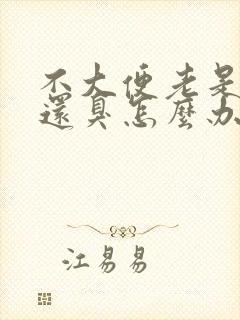 不大便老是
還臭怎麼办
江易易